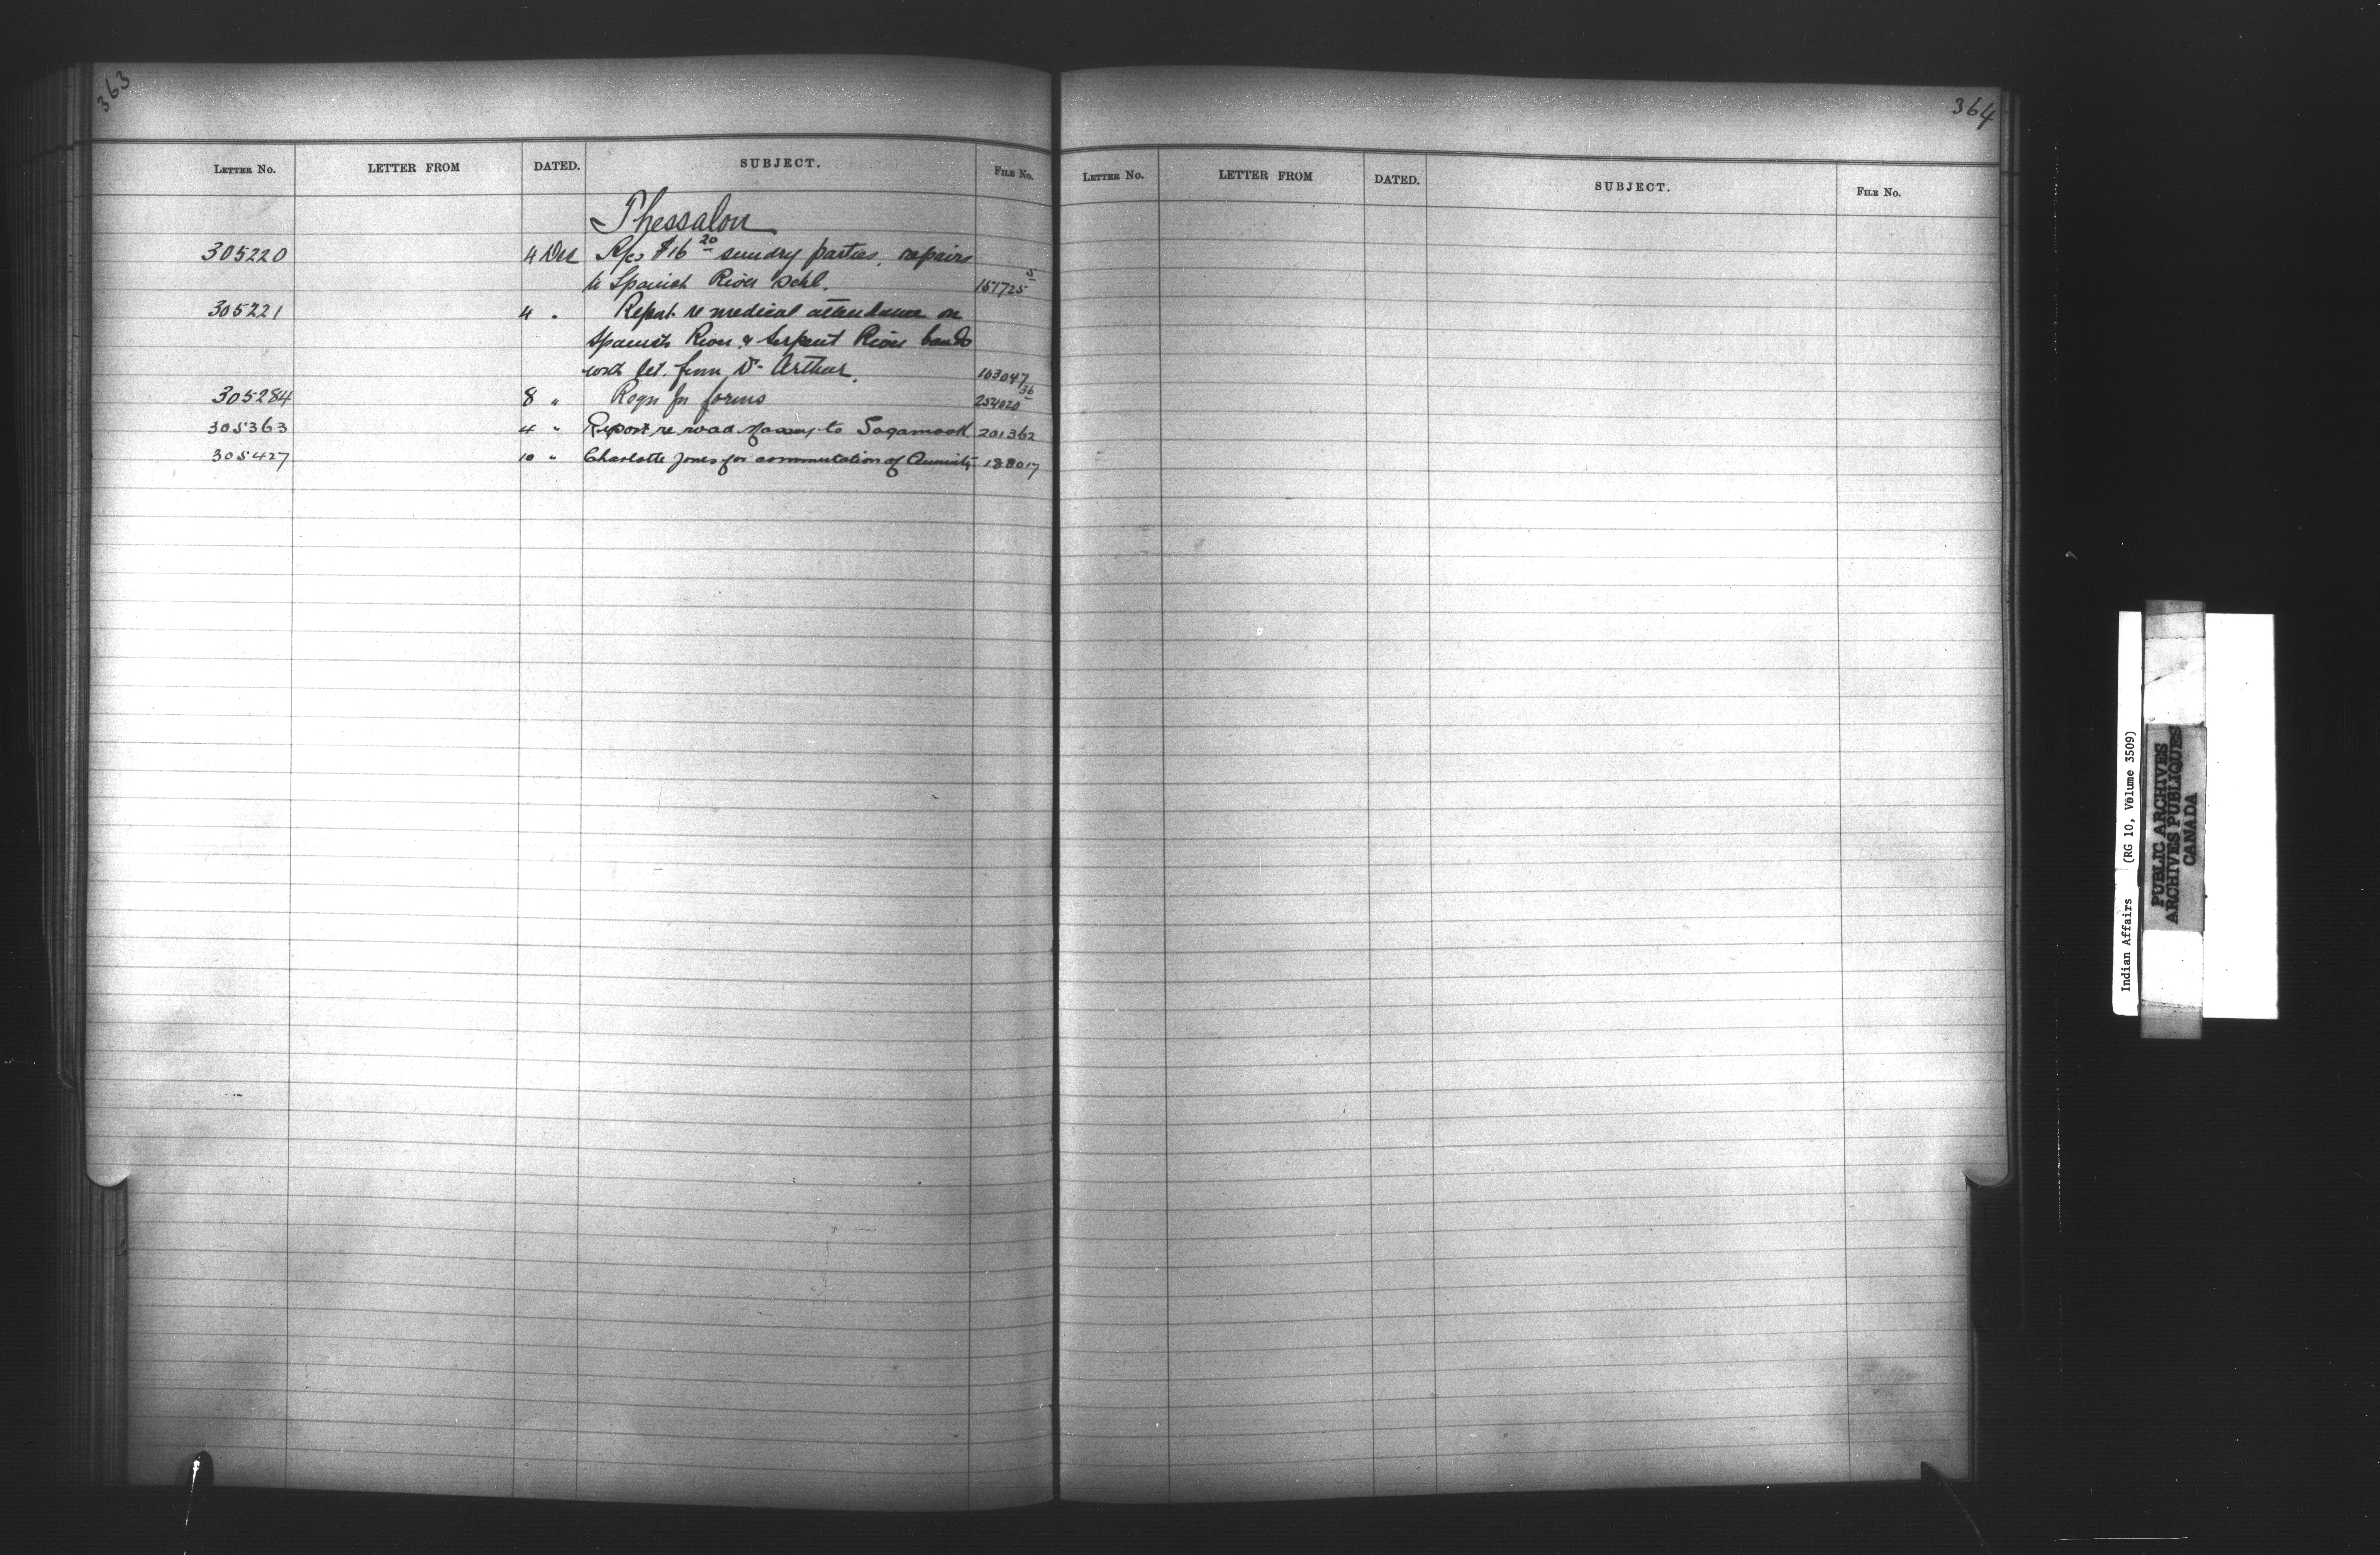 363
LETTER No. LETTER FROM DATED. SUBJECT. FILE No.
Thessalon
305220 4 Dec A/cs $16 20 sundry parties, repairs
to Spanish River Schl. 151725 5
305221 4 " Report re medical attendance on
Spanish River & Serpent River bands
with let. from Dr Arthur. 103047
305284 8 " Reqn for forms 254020 36
305363 4 " Report re road Massey to Sagamook 201362
305427 10 " Charlotte Jones for commutation of Annuity 188017
364
LETTER No. LETTER FROM DATED. SUBJECT. FILE No.
Indian Affairs (RG 10, Volume 3509)
PUBLIC ARCHIVES
ARCHIVES PUBLIQUES
CANADA